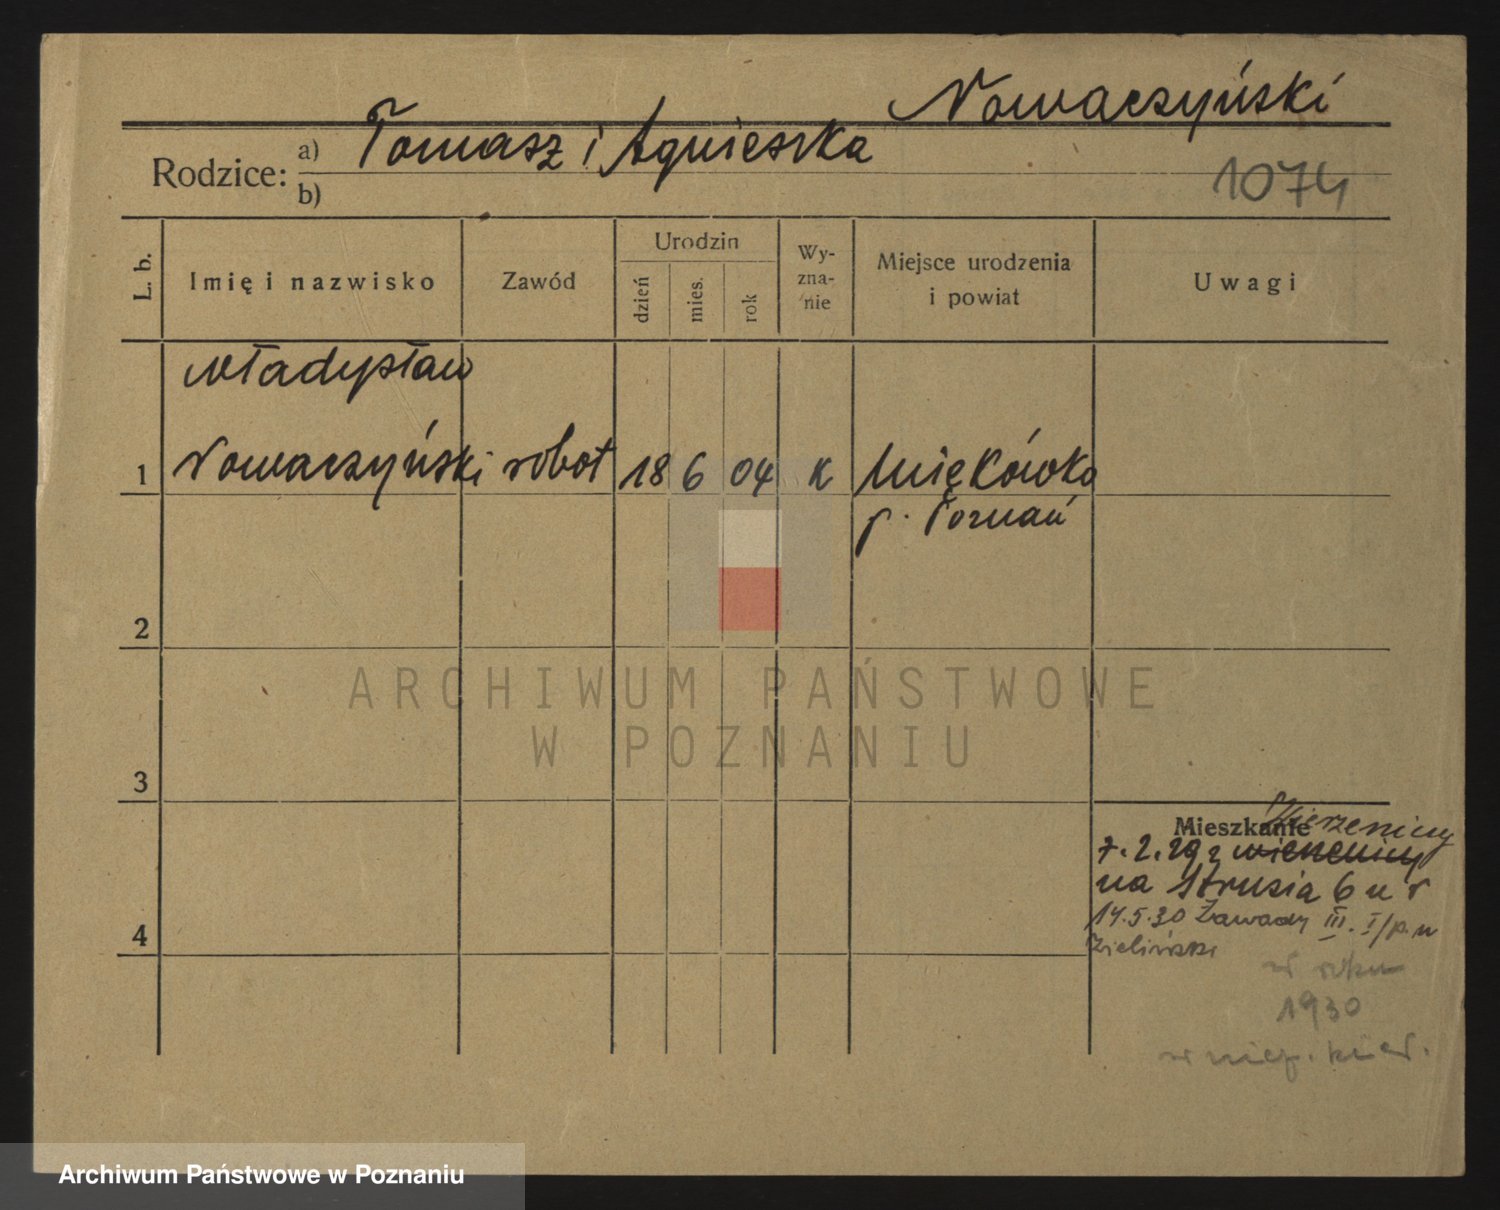 Nowaczyński
Rodzice: a) Tomasz i Agnieszka
b)
1074
L. b.
Imię i nazwisko
Zawód
Urodzin
dzień
mies.
rok
Wy-
zna-
nie
Miejsce urodzenia
i powiat
Uwagi
Władysław
1 Nowaczyński robot 18 6 04 K Miękówko
p. Poznań
2
3
4
Mieszkanie
7.2.29 z
na Strusia 6 u
14.5.30 Zawady III. I/p. u
Zieliński
w roku
1930
w
ARCHIWUM PAŃSTWOWE
W POZNANIU
Archiwum Państwowe w Poznaniu